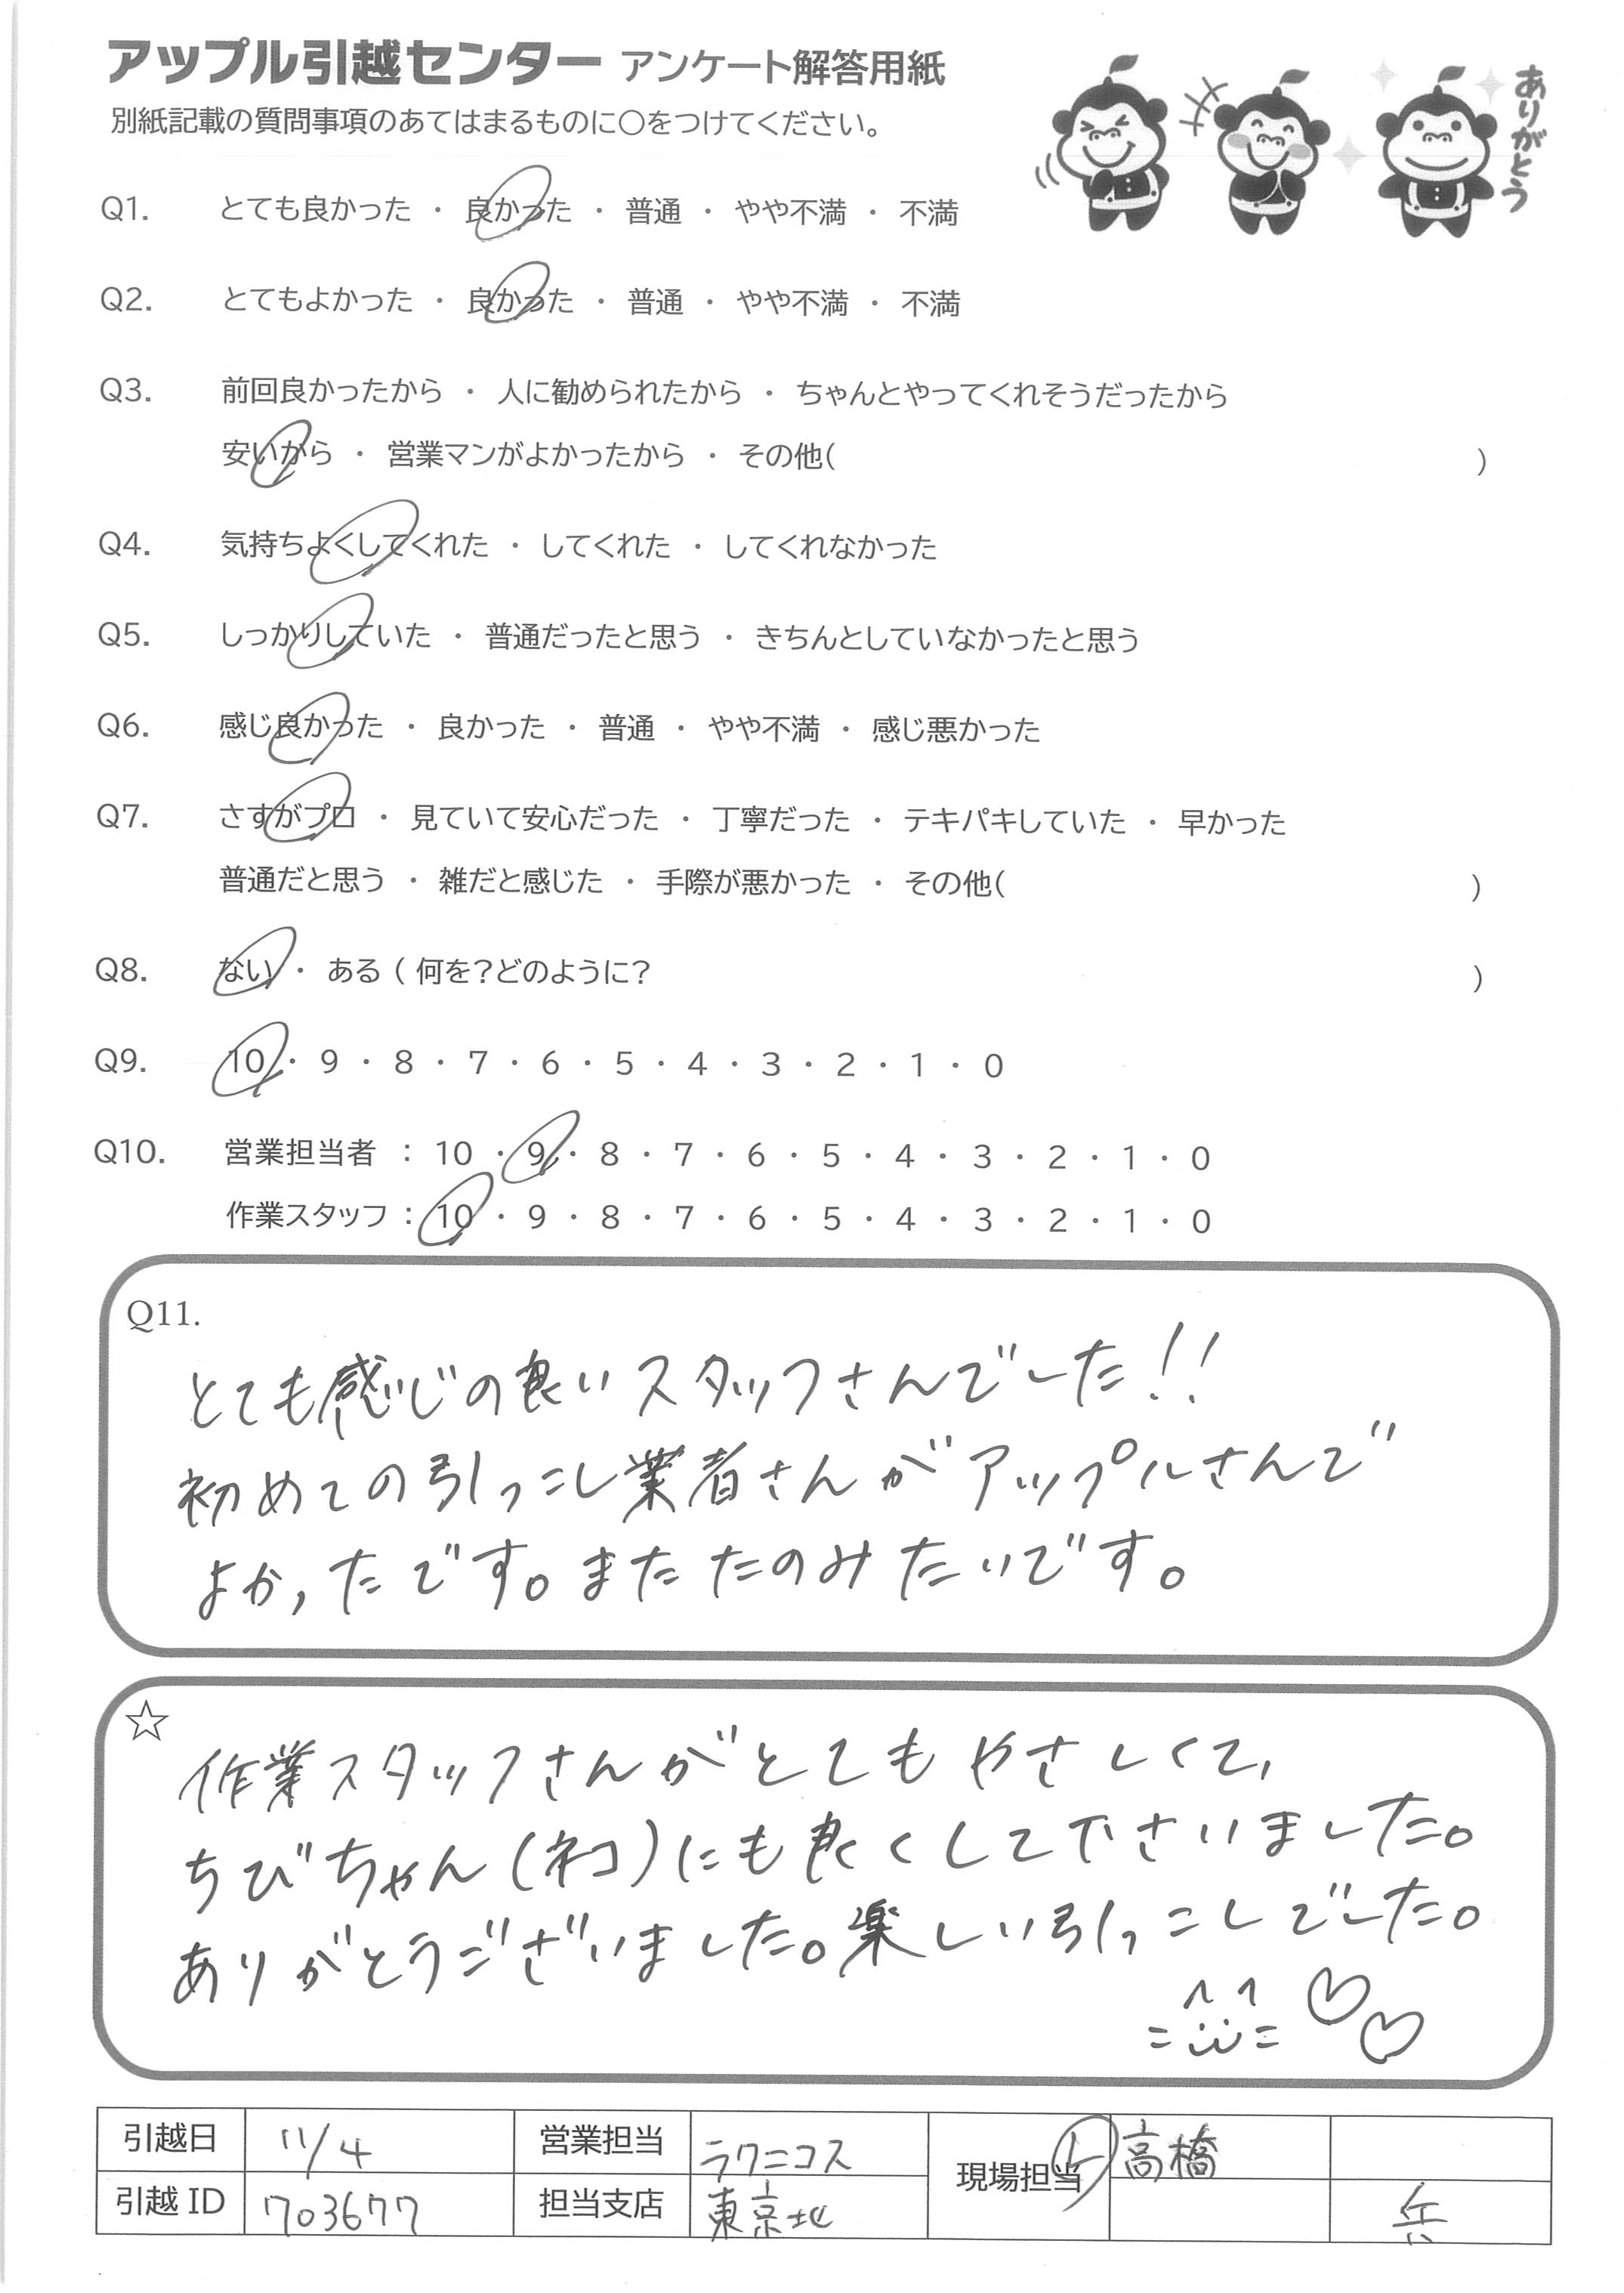 アップル引越センター アンケート解答用紙
ありがとう
別紙記載の質問事項のあてはまるものに○をつけてください。
Q1. とても良かった ・ 良かった ・ 普通 ・ やや不満 ・ 不満
Q2. とてもよかった ・ 良かった ・ 普通 ・ やや不満 ・ 不満
Q3. 前回良かったから ・ 人に勧められたから ・ ちゃんとやってくれそうだったから
安いから ・ 営業マンがよかったから ・ その他( )
Q4. 気持ちよくしてくれた ・ してくれた ・ してくれなかった
Q5. しっかりしていた ・ 普通だったと思う ・ きちんとしていなかったと思う
Q6. 感じ良かった ・ 良かった ・ 普通 ・ やや不満 ・ 感じ悪かった
Q7. さすがプロ ・ 見ていて安心だった ・ 丁寧だった ・ テキパキしていた ・ 早かった
普通だと思う ・ 雑だと感じた ・ 手際が悪かった ・ その他( )
Q8. ない ・ ある ( 何を?どのように? )
Q9. 10 ・ 9 ・ 8 ・ 7 ・ 6 ・ 5 ・ 4 ・ 3 ・ 2 ・ 1 ・ 0
Q10. 営業担当者 : 10 ・ 9 ・ 8 ・ 7 ・ 6 ・ 5 ・ 4 ・ 3 ・ 2 ・ 1 ・ 0
作業スタッフ : 10 ・ 9 ・ 8 ・ 7 ・ 6 ・ 5 ・ 4 ・ 3 ・ 2 ・ 1 ・ 0
Q11.
とても感じの良いスタッフさんでした!!
初めての引っこし業者さんがアップルさんで
よかったです。またたのみたいです。
☆
作業スタッフさんがとてもやさしくて、
ちびちゃん(ネコ)にも良くして下さいました。
ありがとうございました。楽しい引っこしでした。
引越日 11/4 営業担当 ラクニコス 現場担当 L 高橋
引越 ID 703677 担当支店 東京北 兵